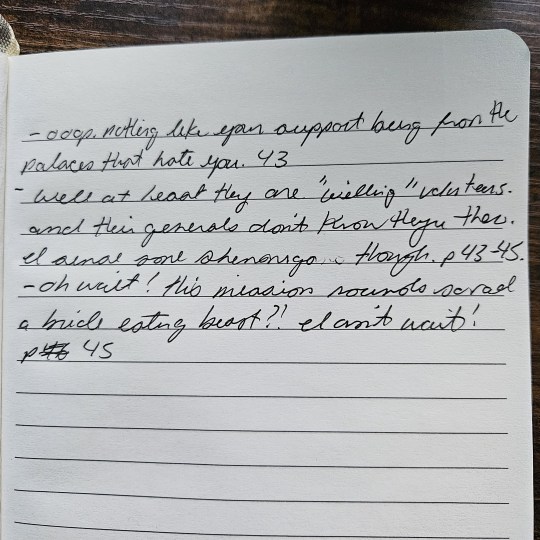 - ooop. nothing like your support being from the
palaces that hate you. 43
- well at least they are "willing" volunteers.
and their generals don't know they're there.
I sense some shenaniga though. p 43-45.
- oh wait! this mission sounds
a bride eating beast?! I can't wait!
p 45